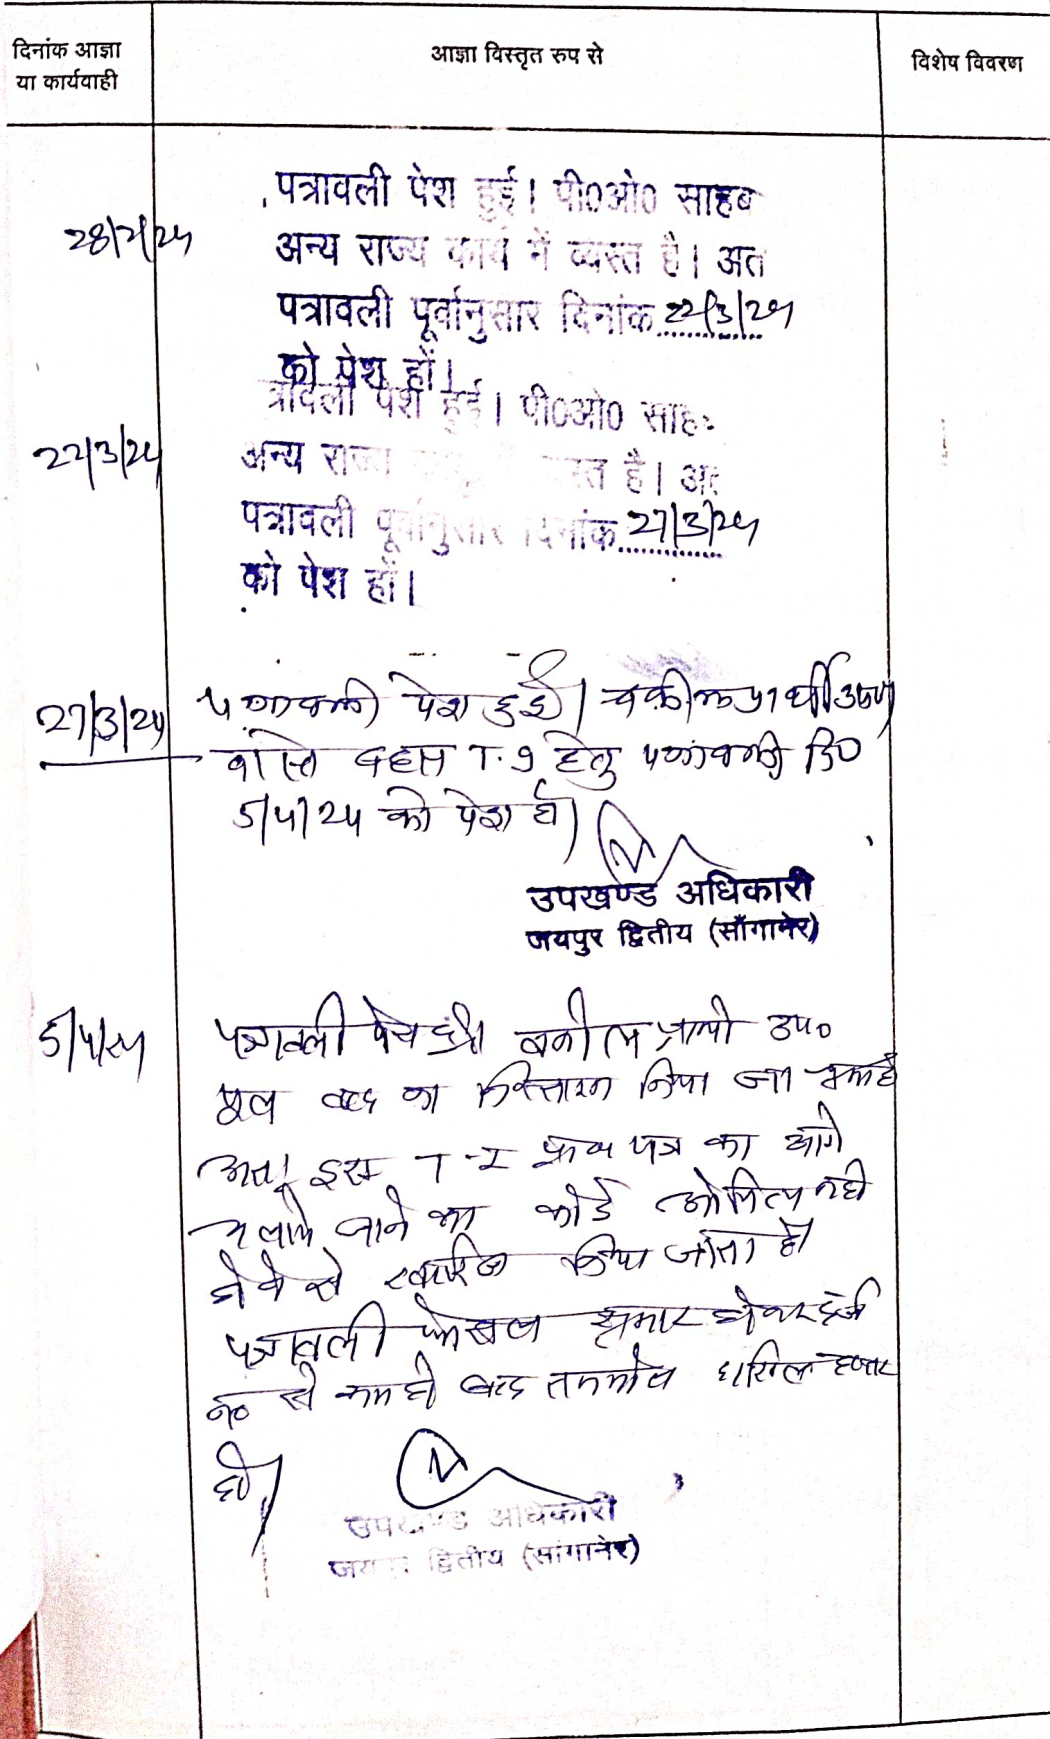 दिनांक आज्ञा
या कार्यवाही
आज्ञा विस्तृत रुप से
विशेष विवरण
28/2/24
पत्रावली पेश हुई। पी0ओ0 साहब
अन्य राज्य कार्य में व्यस्त है। अत
पत्रावली पूर्वानुसार दिनांक 22/3/24
को पेश हों।
22/3/24
त्रावली पेश हुई। पी0ओ0 साह
अन्य राज्य स्त है। अत
पत्रावली पूर्वानुसार दिनांक 27/3/24
को पेश हों।
27/3/24
पत्रावली पेश हुई। वकील प्रार्थी उप0
वास्ते बहस T.I हेतु पत्रावली दि0
5/4/24 को पेश हो।
उपखण्ड अधिकारी
जयपुर द्वितीय (साँगानेर)
5/4/24
पत्रावली पेश हुई। वकील प्रार्थी उप०
मूल वाद का निस्तारण किया जा चुका है
अतः इस T-I प्रा० पत्र का आगे
चलाये जाने का कोई औचित्य नही
होने से खारिज किया जाता है।
पत्रावली फैसल शुमार होकर दर्ज
न० से कम हो बाद तकमील दाखिल दफ्तर
हो।
उपखण्ड अधिकारी
जयपुर द्वितीय (सांगानेर)